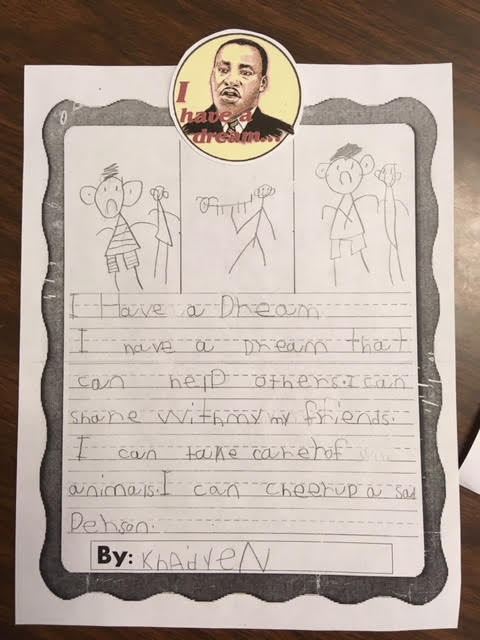 I
have a
dream...
I Have a Dream
I have a Dream that
can help others. I can
share with my my friends.
I can take care of
animals. I can cheer up a sad
Person.
By: KhAidyeN